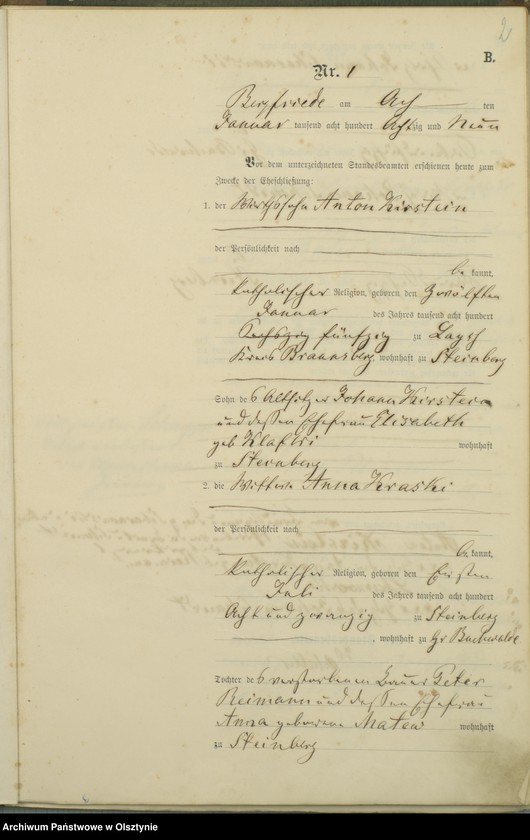 2
B.
Nr. 1
Bergfriede am Ach ten
Januar tausend acht hundert Achtzig und Neun
Vor dem unterzeichneten Standesbeamten erschienen heute zum
Zwecke der Eheschließung:
1. der Wirthssohn Anton Kirstein
der Persönlichkeit nach
be kannt,
katholischer Religion, geboren den zwölften
Januar des Jahres tausend acht hundert
fünfzig zu Laysz
Kreis Braunsberg, wohnhaft zu Steinberg
Sohn des Altsitzer Johann Kirstein
und dessen Ehefrau Elisabeth
geb wohnhaft
zu Steinberg
2. die Wittwe Anna Kraski
der Persönlichkeit nach
be kannt,
katholischer Religion, geboren den Ersten
Juli des Jahres tausend acht hundert
Acht und zwanzig zu Steinberg
, wohnhaft zu Gr Buchwalde
Tochter des verstorbenen Bauer Peter
Reimann und dessen Ehefrau
Anna geborene Matew wohnhaft
zu Steinberg
Archiwum Państwowe w Olsztynie